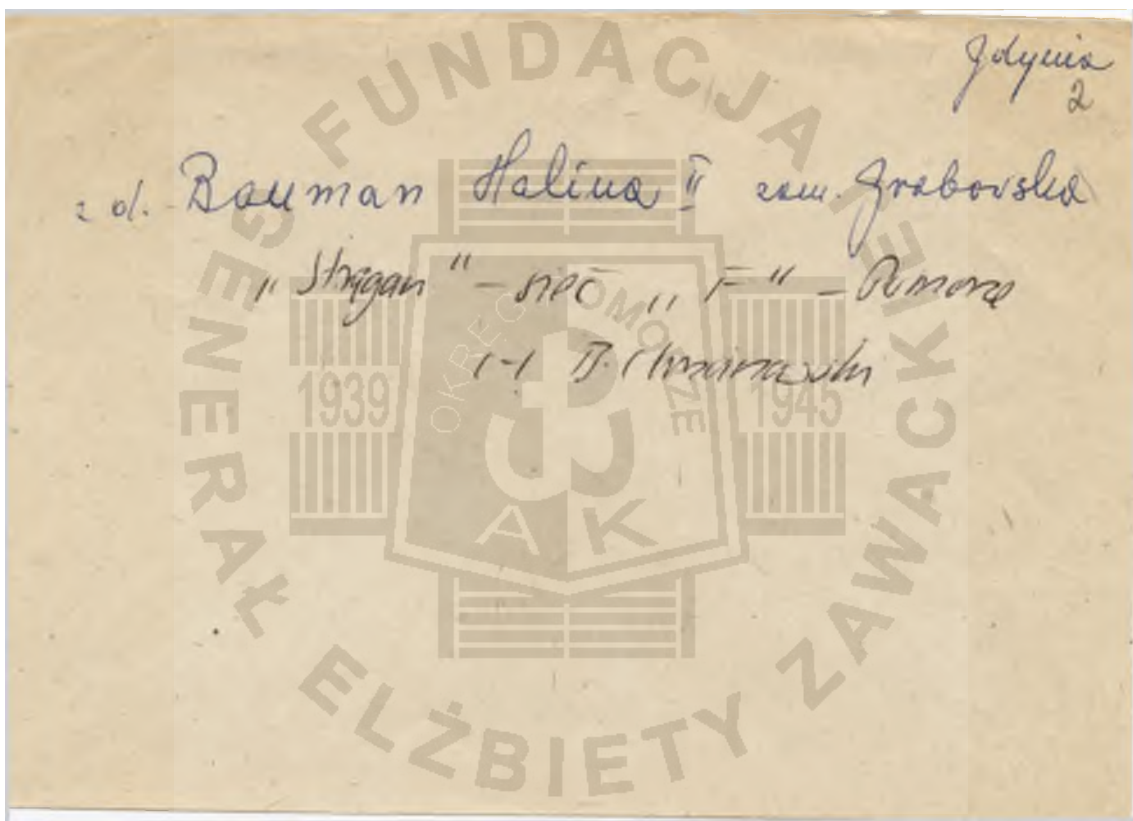 Gdynia
2
z d. Bauman Halina II zam. Grabowska
"Stragan" - sieć "F" - Pomorze
(-) B. Chrzanowski
FUNDACJA
GENERAŁ ELŻBIETY ZAWACKIEJ
OKRĘG POMORZE
1939 1945
AK